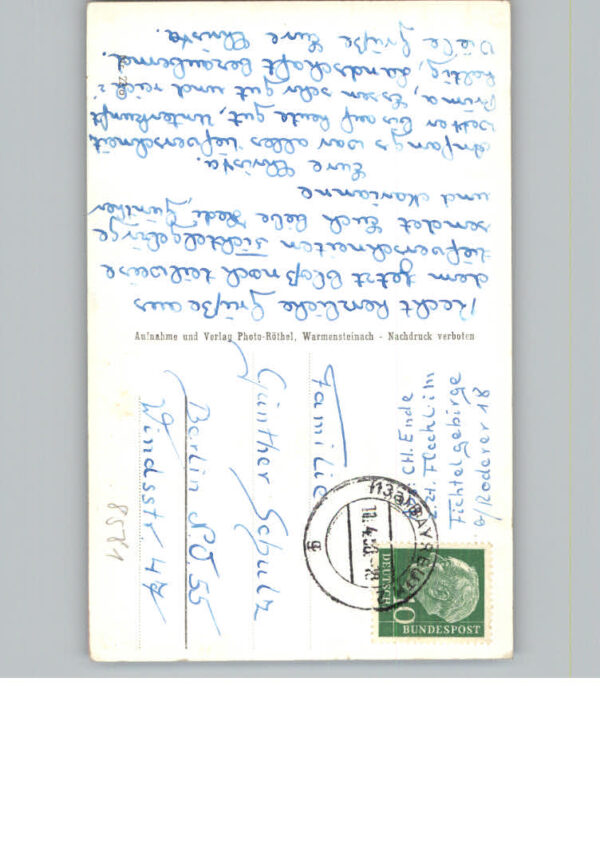 Recht herzliche Grüße aus
dem jetzt bloß noch teilweise
tiefverschneiten Fichtelgebirge
sendet Euch liebe Hedi, Günther
und Marianne
Eure Christa.
Anfangs war alles tiefverschneit,
Wetter bis auf heute gut, Unterkunft
prima, Essen sehr gut und reich-
haltig, Landschaft bezaubernd.
Viele Grüße Eure Christa.
220
Aufnahme und Verlag Photo-Röthel, Warmensteinach - Nachdruck verboten
CH. Ende
z.Zt. Fleckl im
Fichtelgebirge
b/Roderer 18
Familie
Günther Schulz
Berlin N.O 55
Winsstr 47
8571
(13a) BAYREUTH
10.4.
DEUTSCHE
BUNDESPOST